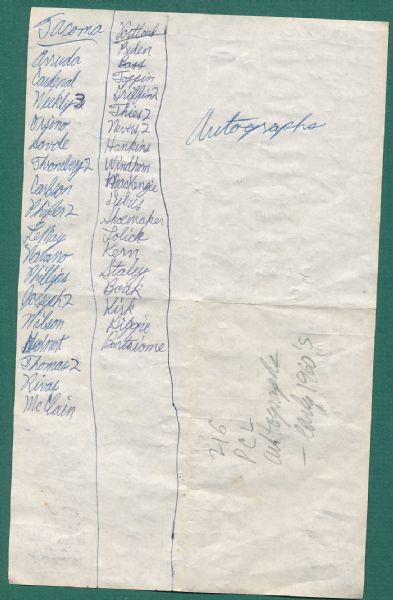 Tacoma
Arruda
Cardenal
Weekly 2
Orsino
Garde
Throneberry 2
Carlson
Phifer 2
LeMay
Navano
Phillips
Joseph 2
Wilson
Hornet
Thomas 2
Rivas
McClain
Portland
Peden
Bass
Toppin
Griffin 2
Thies 2
Neves 2
Hankins
Windhorn
Mackenzie
Debus
Shoemaker
Lolick
Kern
Staley
Boak
Kirk
Rippie
Bartirome
Autographs
216
PCL
Autographs
- Early 1960's